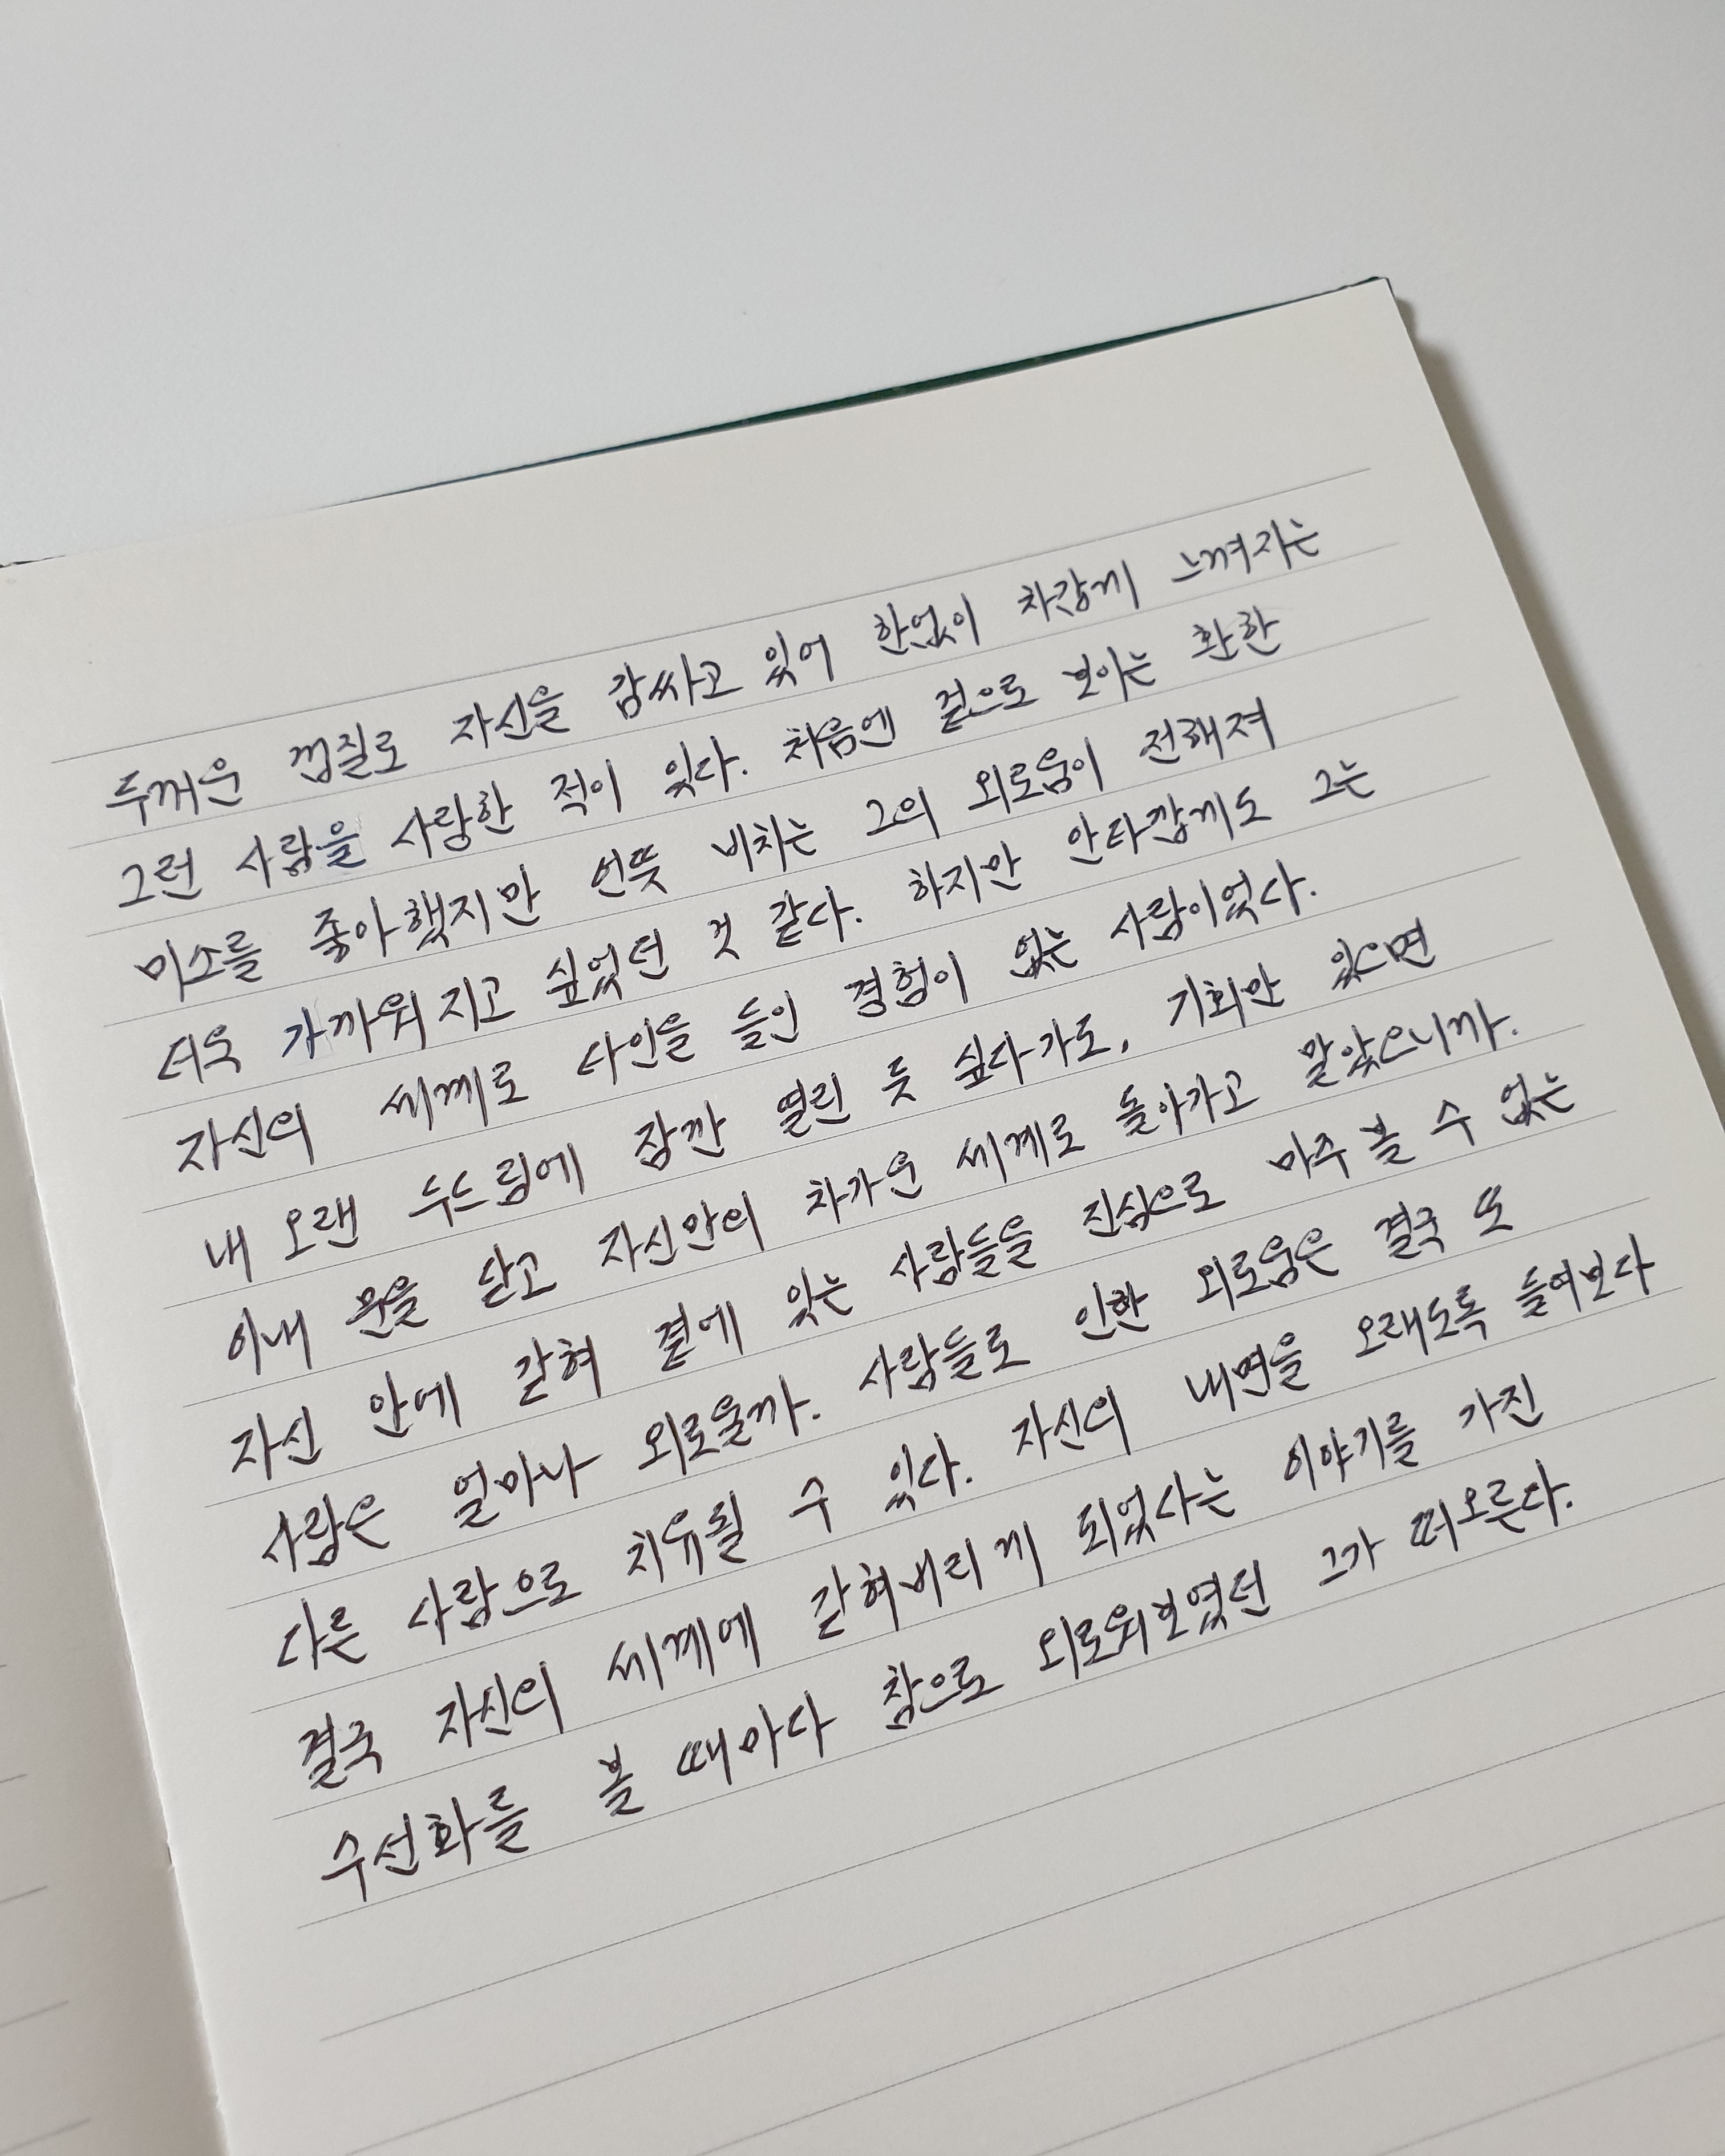 두꺼운 껍질로 자신을 감싸고 있어 한없이 차갑게 느껴지는
그런 사람을 사랑한 적이 있다. 처음엔 겉으로 보이는 환한
미소를 좋아했지만 언뜻 비치는 그의 외로움이 전해져
더욱 가까워지고 싶었던 것 같다. 하지만 안타깝게도 그는
자신의 세계로 타인을 들인 경험이 없는 사람이었다.
내 오랜 두드림에 잠깐 열린 듯 싶다가도, 기회만 있으면
이내 문을 닫고 자신만의 차가운 세계로 돌아가고 말았으니까.
자신 안에 갇혀 곁에 있는 사람들을 진심으로 마주 볼 수 없는
사람은 얼마나 외로울까. 사람들로 인한 외로움은 결국 또
다른 사람으로 치유될 수 있다. 자신의 내면을 오래도록 들여보다
결국 자신의 세계에 갇혀버리게 되었다는 이야기를 가진
수선화를 볼 때마다 참으로 외로워보였던 그가 떠오른다.